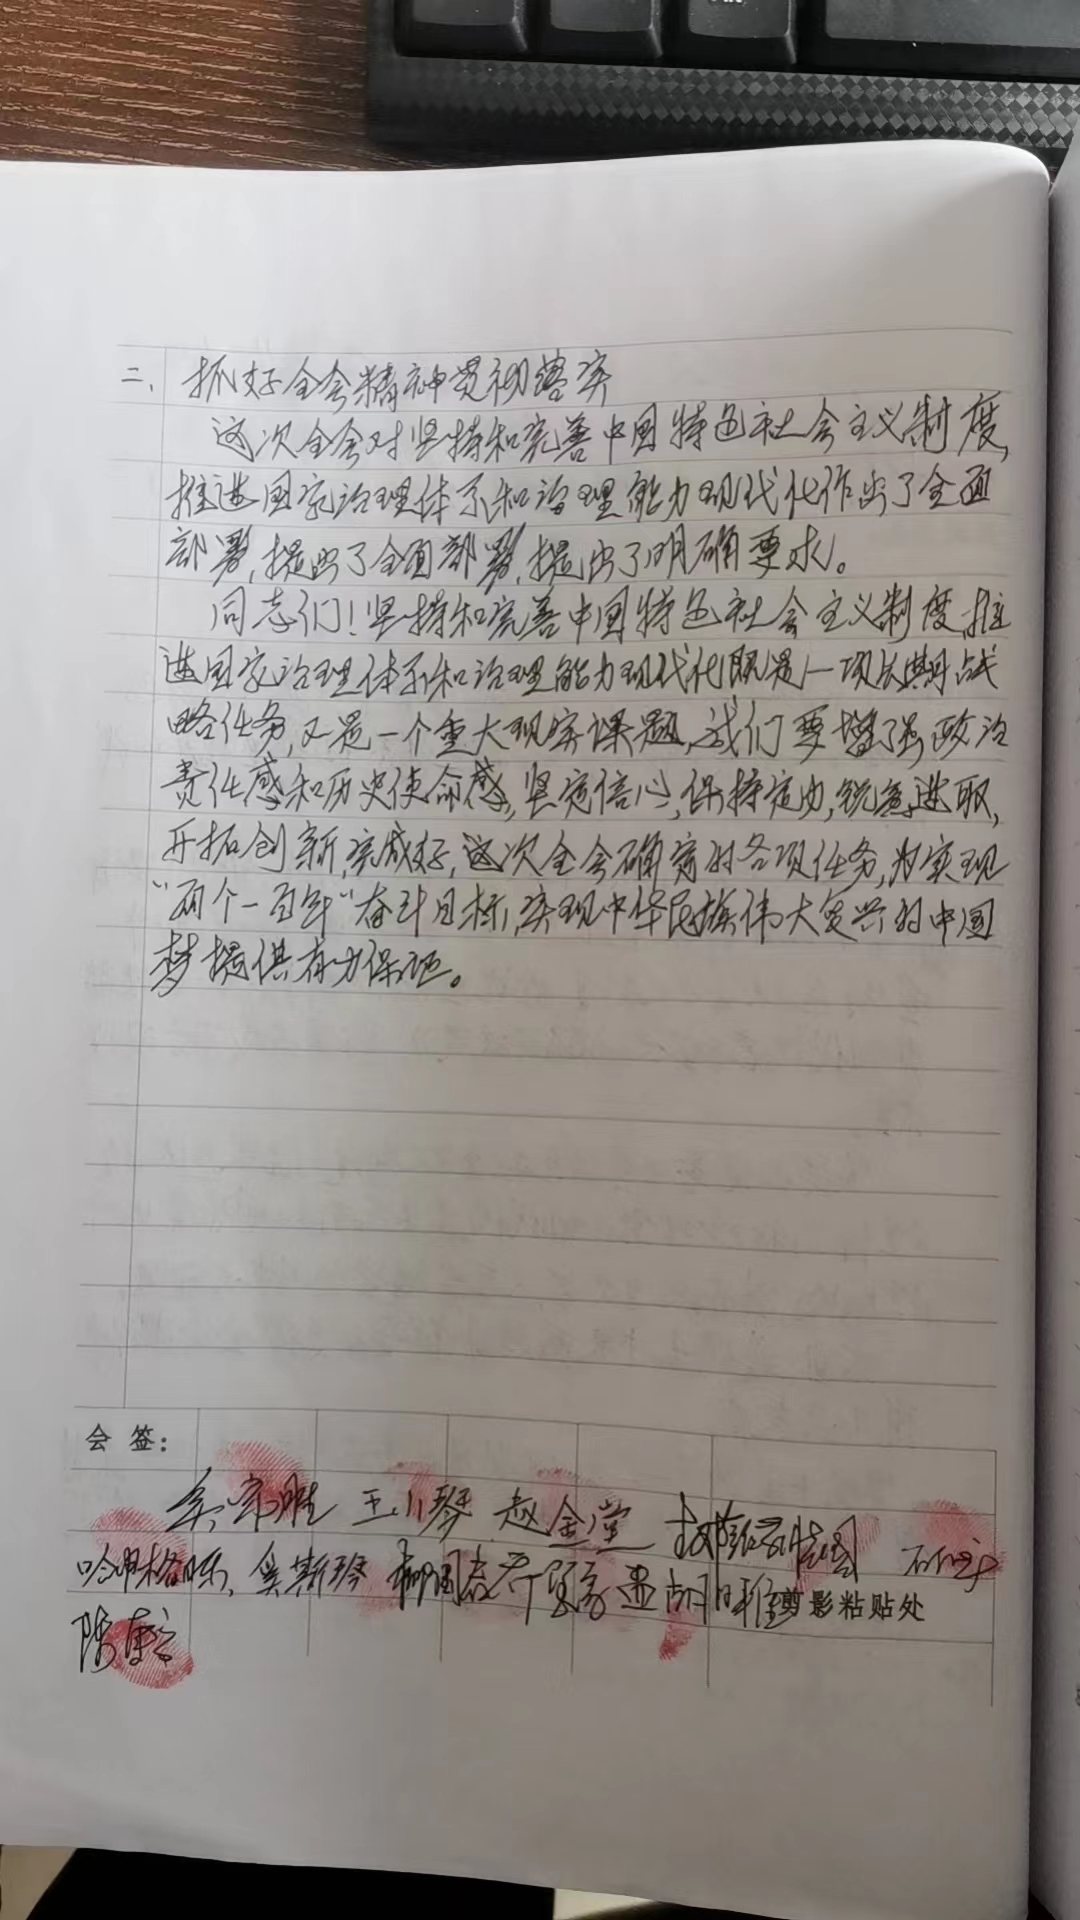 二、抓好全会精神贯彻落实
这次全会对坚持和完善中国特色社会主义制度,
推进国家治理体系和治理能力现代化作出了全面
部署,提出了全面部署,提出了明确要求。
同志们!坚持和完善中国特色社会主义制度,推
进国家治理体系和治理能力现代化既是一项长期战
略任务,又是一个重大现实课题,我们要增强政治
责任感和历史使命感,坚定信心,保持定力,锐意进取,
开拓创新,完成好,这次全会确定的各项任务,为实现
“两个一百年”奋斗目标,实现中华民族伟大复兴的中国
梦提供有力保证。
会 签:
王小琴 赵金堂
剪影粘贴处